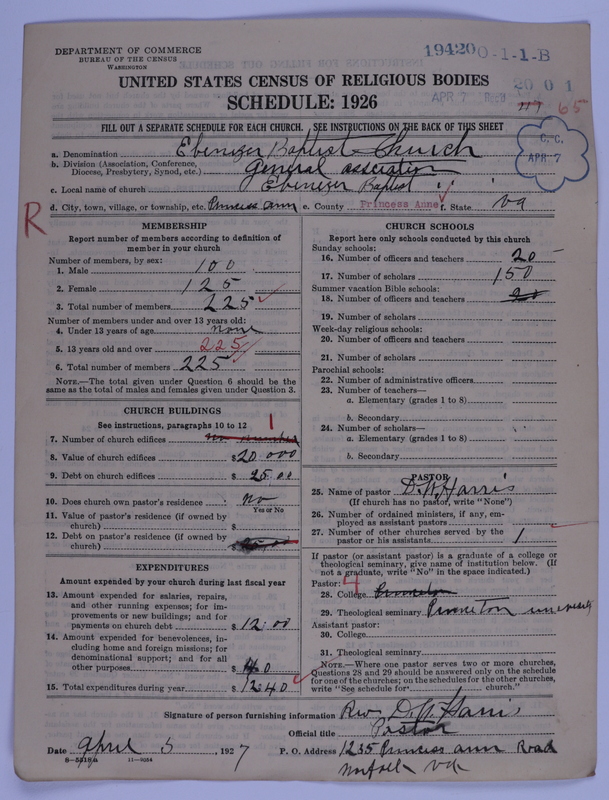 DEPARTMENT OF COMMERCE
BUREAU OF THE CENSUS
WASHINGTON
19420 0-1-1-B
UNITED STATES CENSUS OF RELIGIOUS BODIES
SCHEDULE: 1926
APR 7
2001
117 65
FILL OUT A SEPARATE SCHEDULE FOR EACH CHURCH. SEE INSTRUCTIONS ON THE BACK OF THIS SHEET
C. C.
APR 7
a. Denomination Ebenezer Baptist Church
b. Division (Association, Conference, Diocese, Presbytery, Synod, etc.) General association
c. Local name of church Ebenezer Baptist
d. City, town, village, or township, etc. Princess Ann e. County Princess Anne f. State Va
R
MEMBERSHIP
Report number of members according to definition of member in your church
Number of members, by sex:
1. Male 100
2. Female 125
3. Total number of members 225
Number of members under and over 13 years old:
4. Under 13 years of age none
5. 13 years old and over 225
6. Total number of members 225
NOTE.—The total given under Question 6 should be the same as the total of males and females given under Question 3.
CHURCH BUILDINGS
See instructions, paragraphs 10 to 12
7. Number of church edifices 1
8. Value of church edifices $20 000
9. Debt on church edifices $25.00
10. Does church own pastor's residence No
Yes or No
11. Value of pastor's residence (if owned by church) $
12. Debt on pastor's residence (if owned by church) $
EXPENDITURES
Amount expended by your church during last fiscal year
13. Amount expended for salaries, repairs, and other running expenses; for improvements or new buildings; and for payments on church debt $12.00
14. Amount expended for benevolences, including home and foreign missions; for denominational support; and for all other purposes $40
15. Total expenditures during year $1240
CHURCH SCHOOLS
Report here only schools conducted by this church
Sunday schools:
16. Number of officers and teachers 20
17. Number of scholars 150
Summer vacation Bible schools:
18. Number of officers and teachers 20
19. Number of scholars
Week-day religious schools:
20. Number of officers and teachers
21. Number of scholars
Parochial schools:
22. Number of administrative officers
23. Number of teachers—
a. Elementary (grades 1 to 8)
b. Secondary
24. Number of scholars—
a. Elementary (grades 1 to 8)
b. Secondary
PASTOR
25. Name of pastor D.W. Harris
(If church has no pastor, write "None")
26. Number of ordained ministers, if any, employed as assistant pastors
27. Number of other churches served by the pastor or his assistants 1
If pastor (or assistant pastor) is a graduate of a college or theological seminary, give name of institution below. (If not a graduate, write "No" in the space indicated.)
Pastor: 4
28. College Princeton
29. Theological seminary Princeton university
Assistant pastor:
30. College
31. Theological seminary
NOTE.—Where one pastor serves two or more churches, Questions 28 and 29 should be answered only on the schedule for one of the churches; on the schedules for the other churches, write "See schedule for church."
Signature of person furnishing information Rev D.W. Harris
Official title Pastor
Date April 5, 1927 P. O. Address 1235 Princess ann Road
Norfolk Va
8-5318a 11-9064